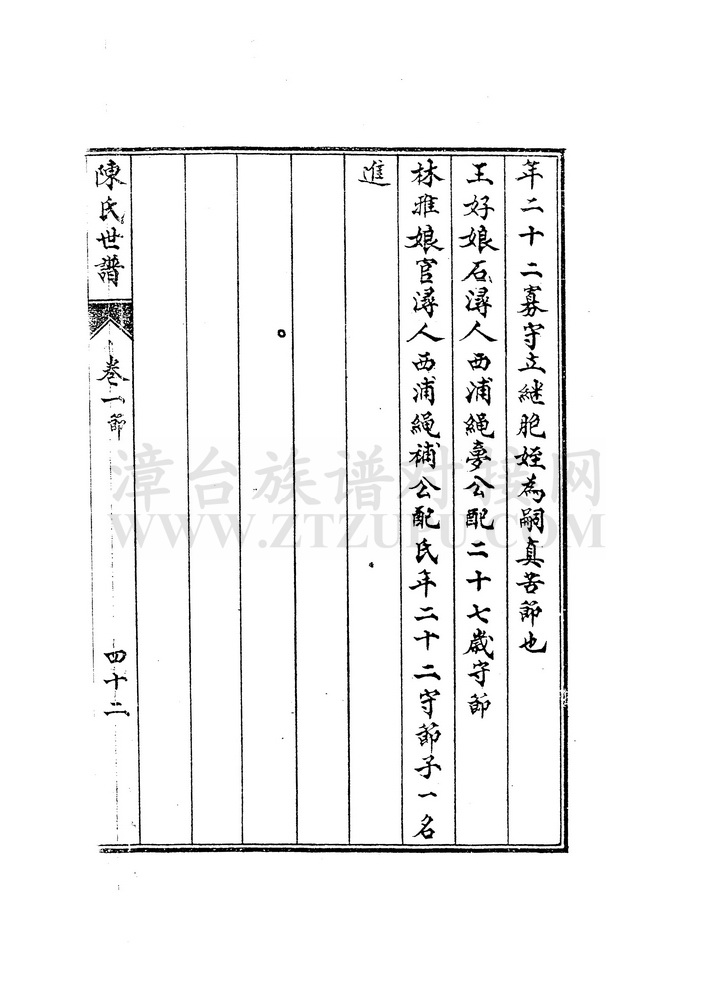 年二十二寡守立継胞姪為嗣真苦節也
王好娘石潯人西浦繩夢公配二十七歲守節
林雅娘官潯人西浦繩補公配氏年二十二守節子一名
進
陳氏世譜
卷一節
四十二
漳台族谱对接网
WWW.ZTZUPU.COM